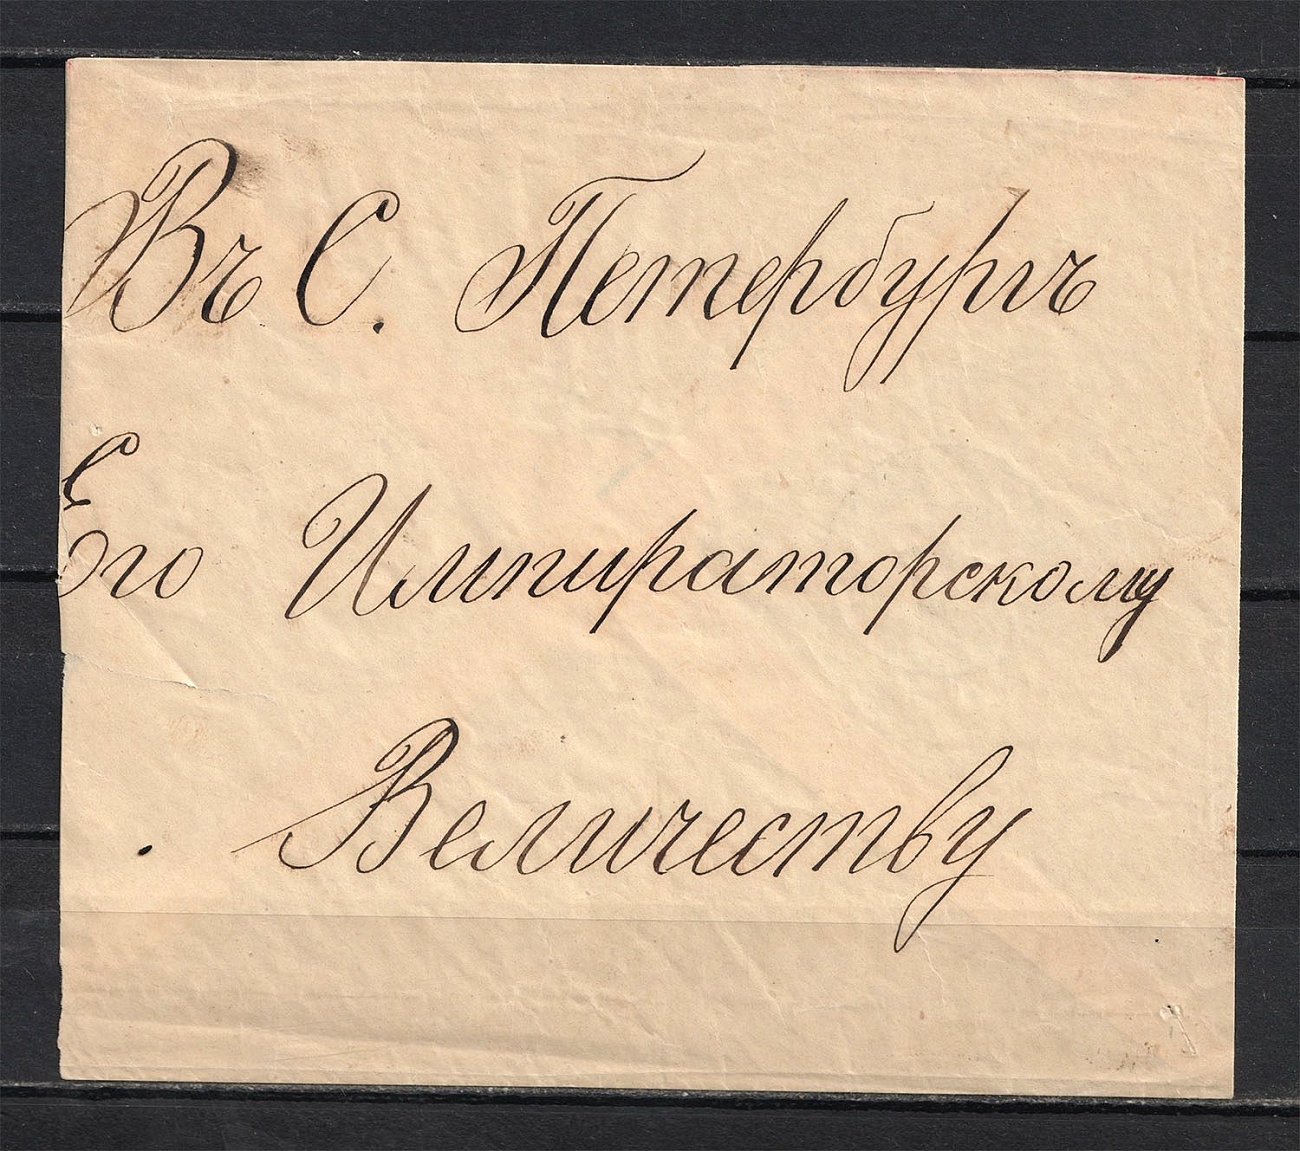 Въ С. Петербургъ
Его Импираторскому
Величеству